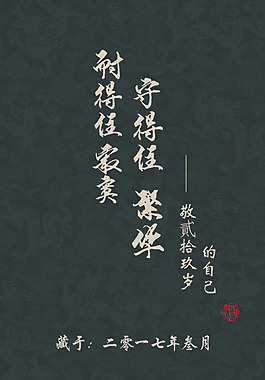 耐得住寂寞
守得住 繁华
——敬貳拾玖岁
的自己
藏于：二零一七年叁月